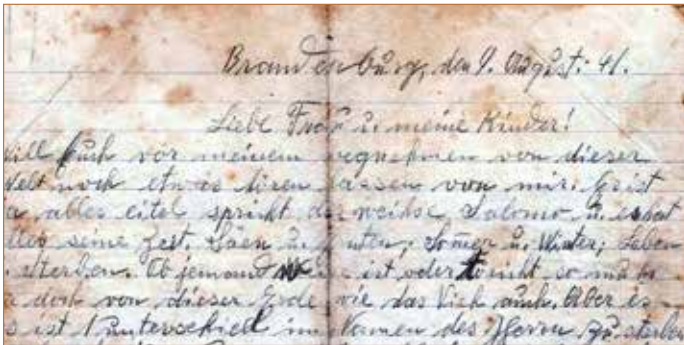 Brandenburg, den 9. August. 41.
Liebe Frau u. meine Kinder!
will Euch vor meinem wegnehmen von dieser
Welt noch etwas hören lassen von mir. Es ist
a alles eitel spricht der weihse Salomo u. es hat
lles seine Zeit. Säen u. Ernten, Somer u. Winter, Leben
. sterben. Ob jemand ist oder töricht so muß
a doch von dieser Erde wie das Vieh auch. Aber es
s ist 1 unterschied im Namen des Herrn zu sterben